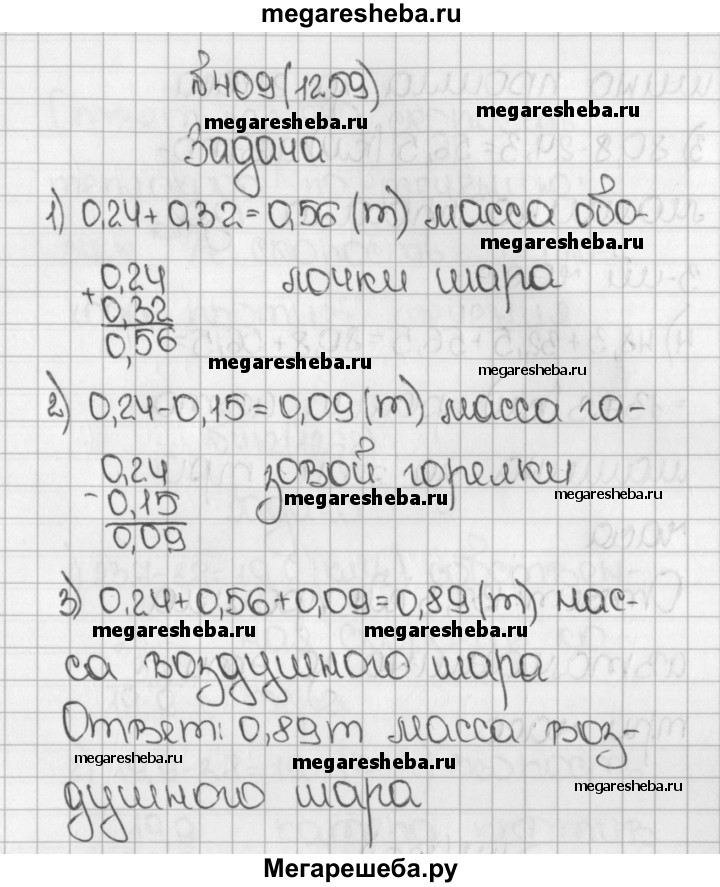 megaresheba.ru
№409(1259)
megaresheba.ru
megaresheba.ru
Задача
1) 0,24+0,32=0,56 (т) масса обо-
megaresheba.ru
0,24 лочки шара
+
0,32
0,56
megaresheba.ru
megaresheba.ru
2) 0,24-0,15=0,09 (т) масса га-
0,24 зовой горелки
-
0,15
megaresheba.ru
megaresheba.ru
0,09
3) 0,24+0,56+0,09=0,89(т) мас-
megaresheba.ru
megaresheba.ru
са воздушного шара
megaresheba.ru
Ответ: 0,89т масса воз-
megaresheba.ru
megaresheba.ru
megaresheba.ru
душного шара
Мегарешеба.ру